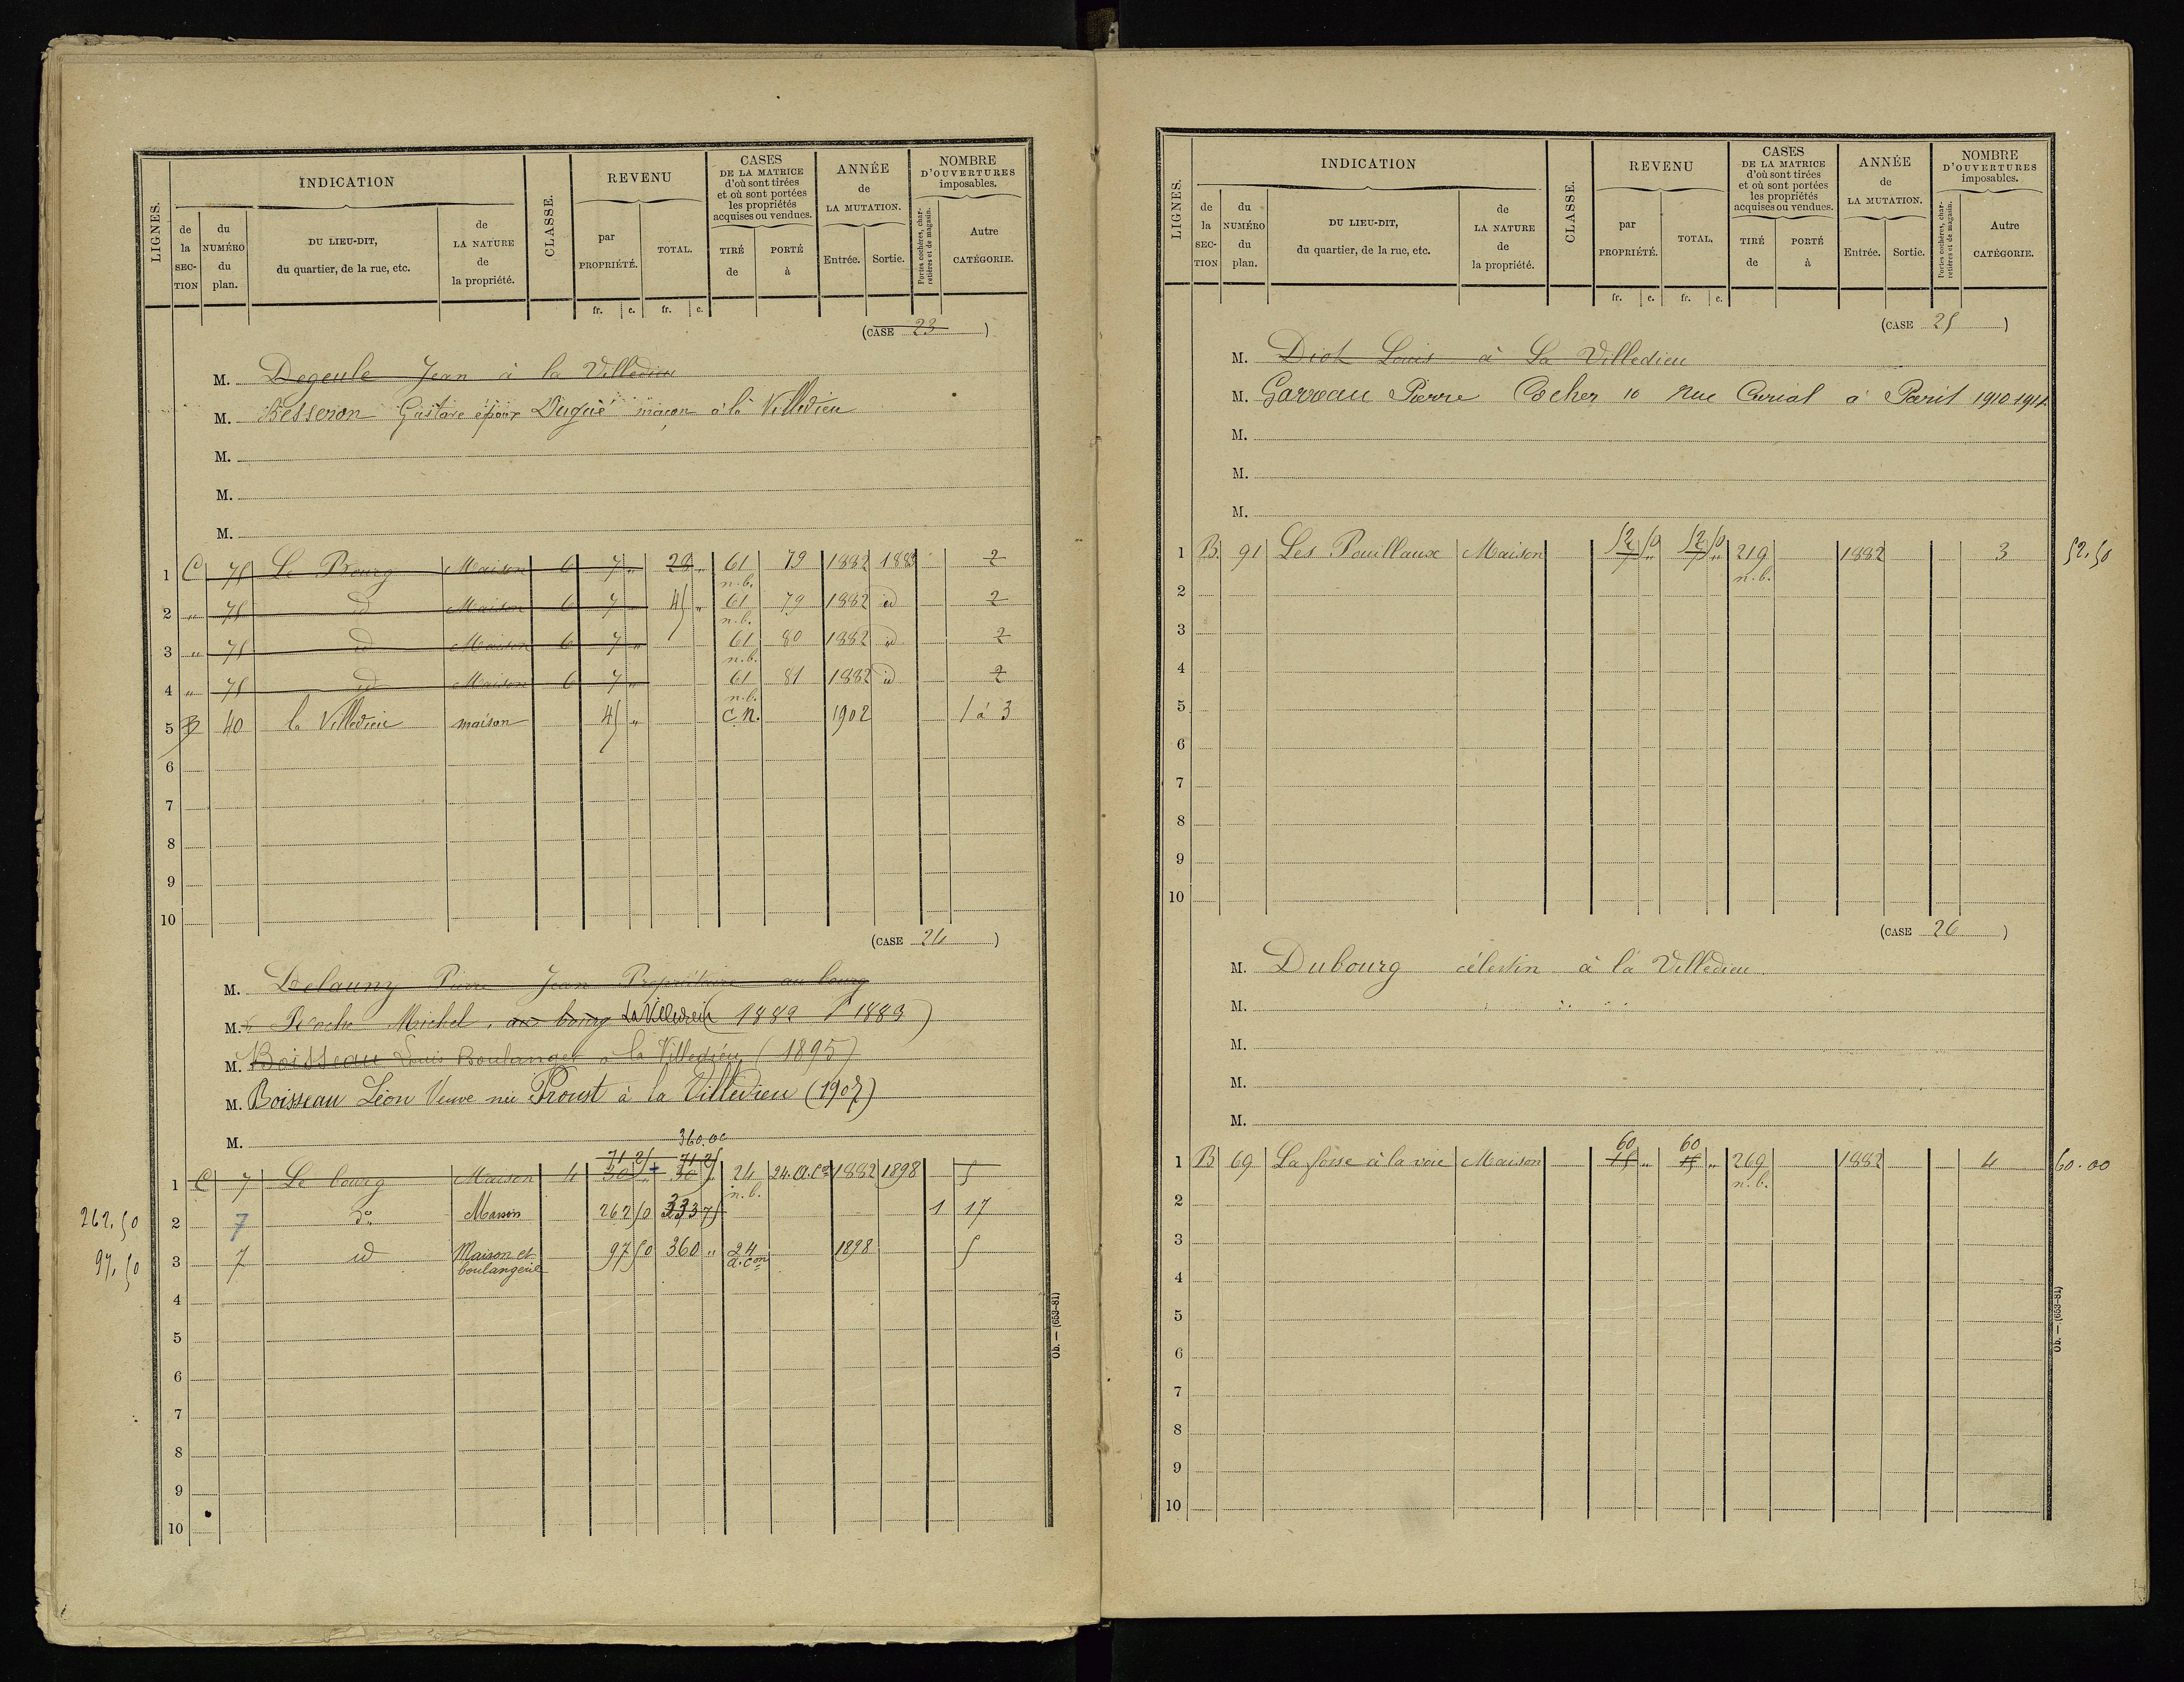 LIGNES.
INDICATION
de la SECTION
du NUMÉRO du plan.
DU LIEU-DIT, du quartier, de la rue, etc.
de LA NATURE de la propriété.
CLASSE.
REVENU
par PROPRIÉTÉ.
TOTAL.
CASES DE LA MATRICE d'où sont tirées et où sont portées les propriétés acquises ou vendues.
TIRÉ de
PORTÉ à
ANNÉE de LA MUTATION.
Entrée.
Sortie.
NOMBRE D'OUVERTURES imposables.
Portes cochères, charretières et de magasin.
Autre CATÉGORIE.
fr. c. fr. c.
(CASE 23 )
M. Degeule Jean à la Villedieu
M. Besseron Gustave époux Dugué maçon à la Villedieu
M.
M.
M.
1 C 75 Le Bourg Maison 6 7 " 28 " 61 n.b. 79 1882 1883 2
2 " 75 id Maison 6 7 " 45 " 61 n.b. 79 1882 id 2
3 " 75 id Maison 6 7 " 61 n.b. 80 1882 id 2
4 " 75 id Maison 6 7 " 61 n.b. 81 1882 id 2
5 B 40 la Villedieu maison 45 " C.N. 1902 1 à 3
6
7
8
9
10
(CASE 24 )
M. Delauny Pierre Jean Propriétaire au bourg
M. Roche Michel, au bourg La Villedieu (1882 1883)
M. Boisseau Louis Boulanger à la Villedieu (1895)
M. Boisseau Léon Veuve née Proust à la Villedieu (1907)
M.
360.00
71 25 71 25
1 C 7 Le bourg Maison 4 30 " 30 " 24 n.b. 24.a.con 1882 1898 5
262.50 2 7 do Maison 262 50 333 75 1 17
97.50 3 7 id Maison et boulangerie 97 50 360 " 24 a.con 1898 5
4
5
6
7
8
9
10
Ob. — (653-81)
LIGNES.
INDICATION
de la SECTION
du NUMÉRO du plan.
DU LIEU-DIT, du quartier, de la rue, etc.
de LA NATURE de la propriété.
CLASSE.
REVENU
par PROPRIÉTÉ.
TOTAL.
CASES DE LA MATRICE d'où sont tirées et où sont portées les propriétés acquises ou vendues.
TIRÉ de
PORTÉ à
ANNÉE de LA MUTATION.
Entrée.
Sortie.
NOMBRE D'OUVERTURES imposables.
Portes cochères, charretières et de magasin.
Autre CATÉGORIE.
fr. c. fr. c.
(CASE 25 )
M. Diot Louis à La Villedieu
M. Garreau Pierre Cocher 10 rue Curial à Paris 1910 1911
M.
M.
M.
52 50 52 50
1 B 91 Les Pouillaux Maison 7 " 7 " 219 n.b. 1882 3 52.50
2
3
4
5
6
7
8
9
10
(CASE 26 )
M. Dubourg célestin à la Villedieu
M.
M.
M.
M.
60 60
1 B 69 La fosse à la voie Maison 15 " 15 " 269 n.b. 1882 4 60.00
2
3
4
5
6
7
8
9
10
Ob. — (653-81)